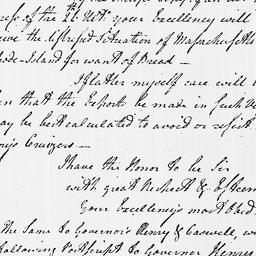 of the 26 Ult. your Excellency will
the distressed Situation of Massachusetts
Island for want of Bread —
I flatter myself care will
that the Export be made in such
be best calculated to avoid or resist
Cruizers —
I have the Honor to be Sir
with great Respect & Esteem
Your Excellency's most Obed.
The Same to Governors Henry & Caswell,
following Postscript to Governor Henry